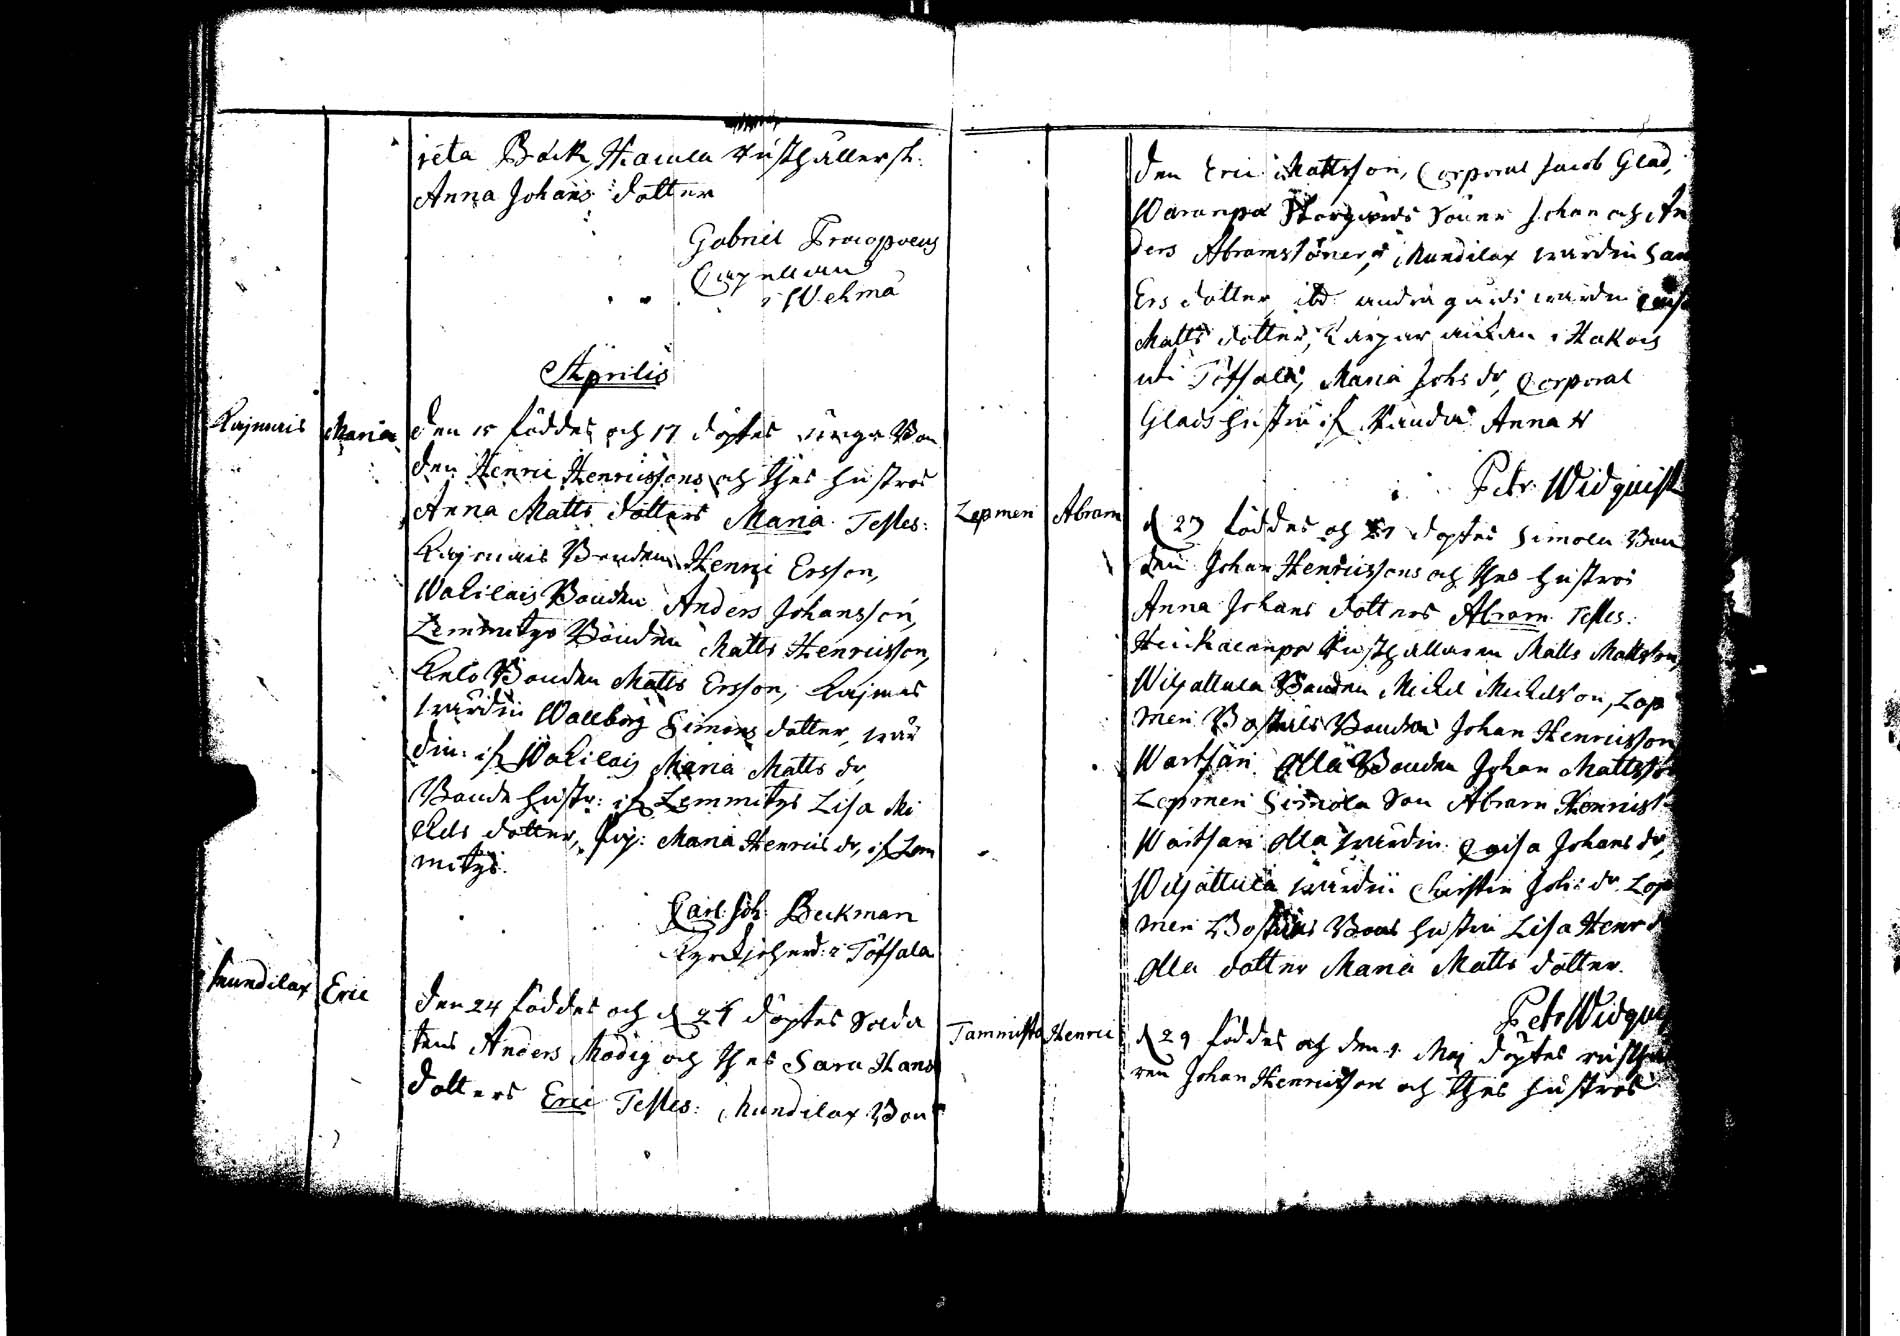 reta Böck, Haiula Rusthållersh:
Anna Johans dotter
Gabriel Procopoeus
Capellan
i Wehmå
Aprilis
Rajmais Maria den 15 föddes och 17 döptes unga Bon
den Henric Henricssons och thes hustros
Anna Matts dotters Maria. Testes:
Rajmais Bonden Henric Ersson,
Wakilais Bonden Anders Johansson,
Lemmitys Bonden Matts Henricsson,
Bonden Matts Ersson, Rajmais
wärdin Wallborg Simons dotter, wär
din: if. Wakilais Maria Matts dr,
Bonde hustr: if Lemmitys Lisa Mi
chels dotter, pig: Maria Henrics dr, if Lem
mitys.
Carl Joh: Beckman
Kyrckjoherd: i Töfsala
Mundilax Eric den 24 föddes och d 24 döptes Solda
tens Anders Modig och thes Sara Hans
dotters Eric Testes: Mundilax Bon
den Eric Mattsson, Corporal Jacob Glad,
Waranpä Söner Johan och An
ders Abramssöner, Mundilax wärdin Sara
Ers dotter, ibd. andra gårds wärdin
Matts dotter, i Hakois
uti Töfsala, Maria Johs dr, Corporal
Glads hustru if Anna
Petr Widquist
Lepmeri Abram d 27 föddes och döptes Simola Bon
den Johan Henricssons och thes hustros
Anna Johans dotters Abram. Testes:
Heickaranpä Rusthållaren Matts Mattsson,
Wiljattula Bonden Michel Michelsson, Lep
meri Bonden Johan Henricsson
Wartsari Olla Bonden Johan Mattsson
Lepmeri Simola Son Abram Henricss
Wartsari Olla wärdin Caisa Johans dr,
Wiljattula wärdin Christin Joh: dr. Lep
meri hustru Lisa Henr d
Olla dotter Maria Matts dotter.
Petr Widquist
Tammisto Henric d 29 föddes och den 1 Maj döptes
ren Johan Henricsson och thes hustros